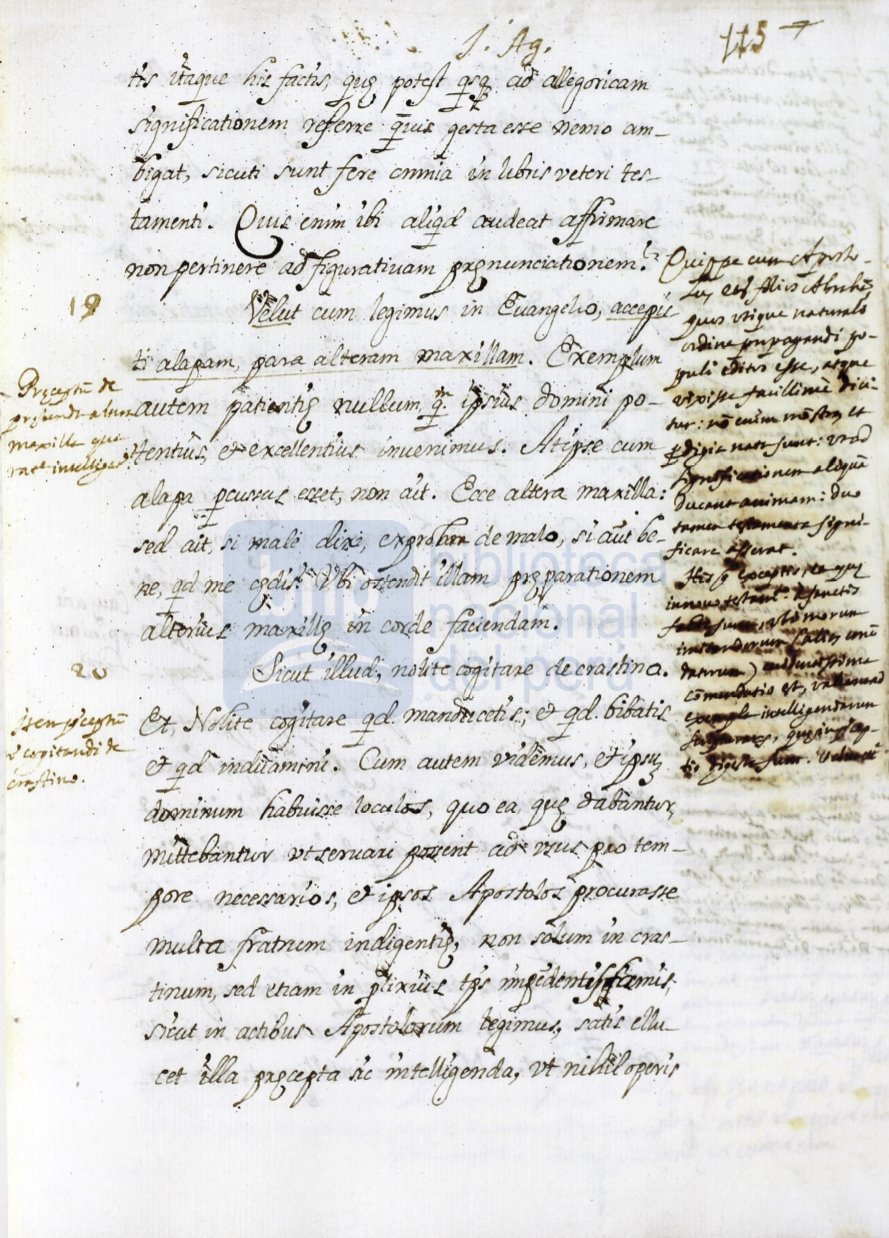 S. Ag.
115
tis itaque his factis, quę potest qsq ad allegoricam
significationem referre quis gesta esse nemo am-
bigat, sicuti sunt fere omnia in libris veteri tes-
tamenti. Quis enim ibi aliqd audeat affirmare
non pertinere ad figurativam prenunciationem?
19
Velut cum legimus in Evangelio, accepis
ti alapam, para alteram maxillam. Exemplum
autem patientię nullum, qm ipsius domini po-
tentius, et excellentius invenimus. At ipse cum
alapa pcussus esset, non ait. Ecce altera maxilla:
sed ait, si male dixe, exprobra de malo, si aut be-
ne, qd me cędis? Vbi ostendit illam pręparationem
alterius maxillę in corde faciendam.
20
Sicut illud, nolite cogitare de crastino.
Et, Nolite cogitare qd manducetis; et qd bibatis
et qd induamini. Cum autem videmus, et ipsu
dominum habuisse loculos, quo ea, quę dabantur,
mittebantur vt servari possent ad vsus pro tem-
pore necessarios, et ipsos Apostolos procurasse
multa fratrum indigentię, non solum in cras-
tinum, sed etiam in plixius tps impendentis famis,
sicut in actibus Apostolorum legimus, satis ellu-
cet illa pręcepta sic intelligenda, vt nihil operis
Preceptu de
altera
maxilla que
Item pręceptu
cogitandi de
crastino.
Quippe cum Aposto-
lus et filios Abrahę
quos vtique naturali
ordine propagandi po-
puli editos esse, atque
vixisse facillime dici-
tur: nō enim monstra et
pdigia nata sunt: vt ad
significationem aliquā
ducant animam: duo
tamen testamenta signi-
ficare asserat.
His exceptis, ea quę
in novo testam. a sanctis
facta sunt
biblioteca
nacional
del perú